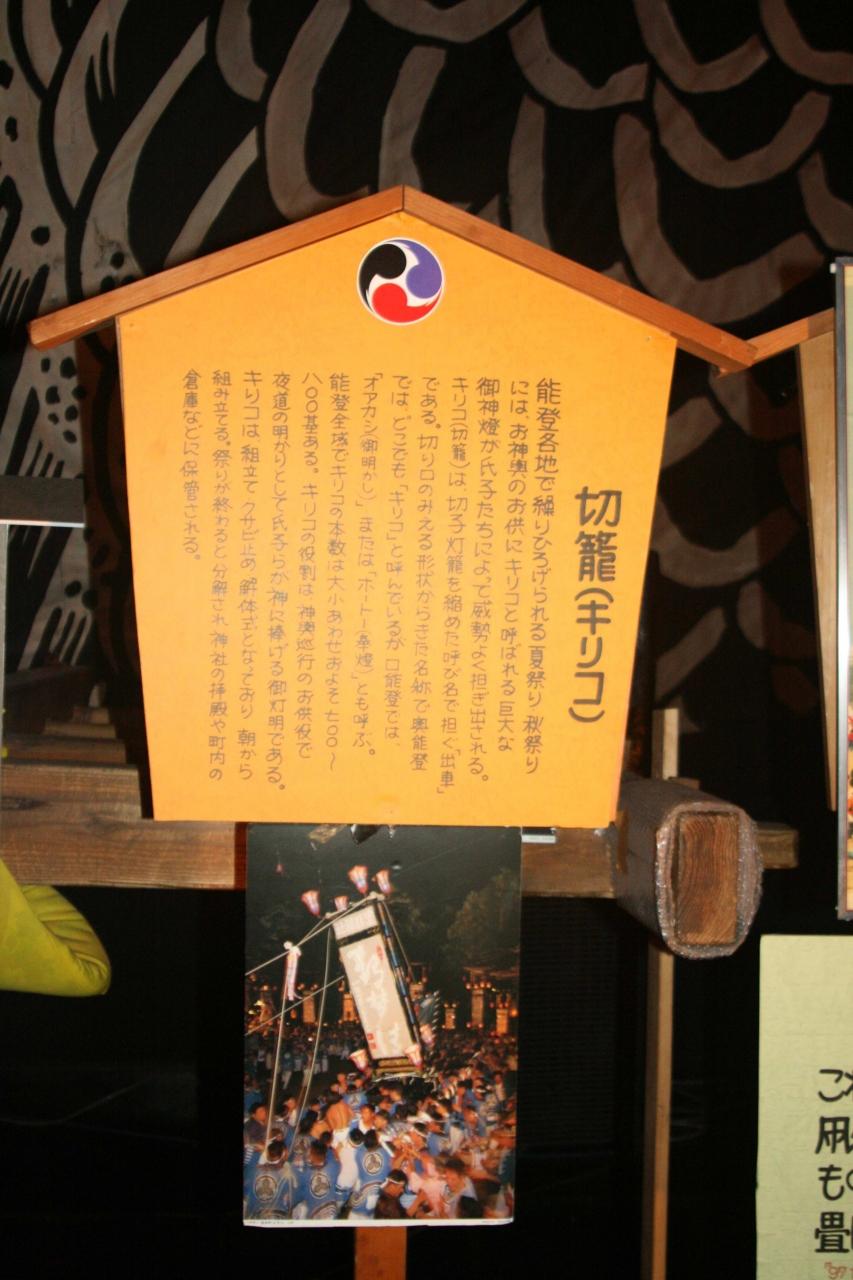 切籠(キリコ)
能登各地で繰りひろげられる夏祭り 秋祭り
には、お神輿のお供にキリコと呼ばれる巨大な
御神燈が氏子たちによって威勢よく担ぎ出される。
キリコ(切籠)は、切子灯籠を縮めた呼び名で担ぐ「出車」
である。切り口のみえる形状からきた名称で奥能登
では、どこでも「キリコ」と呼んでいるが 口能登では、
「オアカシ(御明かし)」または「ホートー(奉燈)」とも呼ぶ。
能登全域でキリコの本数は大小あわせおよそ七〇〇〜
八〇〇基ある。キリコの役割は 神輿巡行のお供役で
夜道の明かりとして氏子らが神に捧げる御灯明である。
キリコは、組立てクサビ止め 解体式となっており 朝から
組み立てる。祭りが終わると分解され 神社の拝殿や町内の
倉庫などに保管される。
も
畳